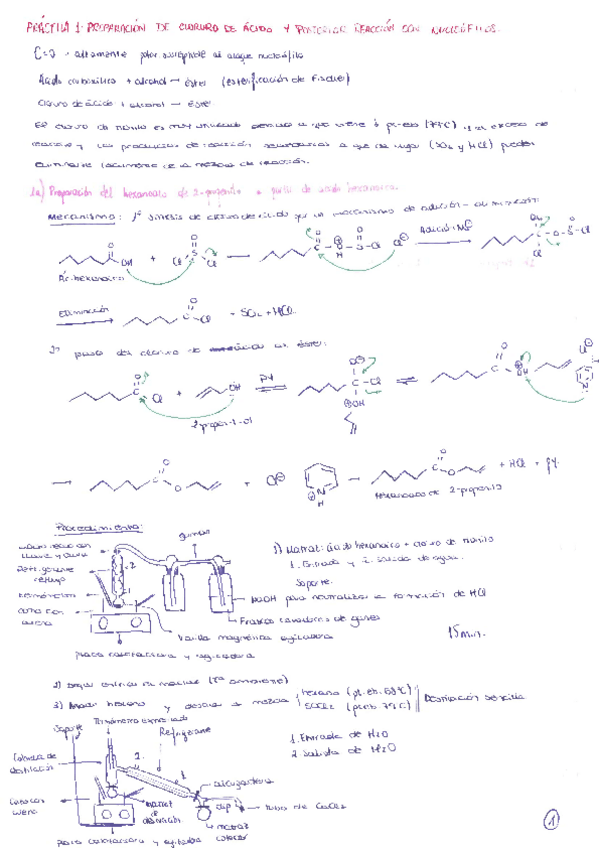 PRÁCTICA 1: PREPARACIÓN DE CLORURO DE ÁCIDO Y POSTERIOR REACCIÓN CON NUCLEÓFILOS.
C=O - altamente polar susceptible al ataque nucleófilo
Ácido carboxílico + alcohol → éster (esterificación de Fischer)
Cloruro de ácido + alcohol → éster
El cloruro de tionilo es muy utilizado debido a que tiene ↓ pt. eb (79°C) y el exceso de
reactivo y los productos de reacción secundarios a que da lugar (SO2 y HCl) pueden
eliminarse fácilmente de la mezcla de reacción.
1a) Preparación del hexanoato de 2-propenilo a partir de ácido hexanoico.
Mecanismo: 1º síntesis de cloruro de ácido por un mecanismo de adición-eliminación
Adición Nu
Ác. hexanoico
Eliminación
- SO2 + HCl
2º paso del cloruro de ácido al éster:
py
2-propen-1-ol
+ HCl + py
Hexanoato de 2-propenilo
Procedimiento:
gomas
1) Matraz: ácido hexanoico + cloruro de tionilo
1. Entrada y 2. salida de agua.
Soporte.
refrigerante
reflujo
termómetro
NaOH para neutralizar la formación de HCl
Frascos lavadores de gases
Varilla magnética agitadora
15 min.
placa calefactora y agitadora
2) Dejar enfriar la mezcla (Tª ambiente)
3) Añadir hexano y destilar la mezcla
hexano (pt. eb. 69°C)
SOCl2 (pt. eb. 79°C)
Destilación sencilla
Soporte
Refrigerante
1. Entrada de H2O
2. Salida de H2O
Columna de
destilación
alcuzadera
tubo de CaCl2
matraz
de
destilación
matraz
colector
placa calefactora y agitadora
1